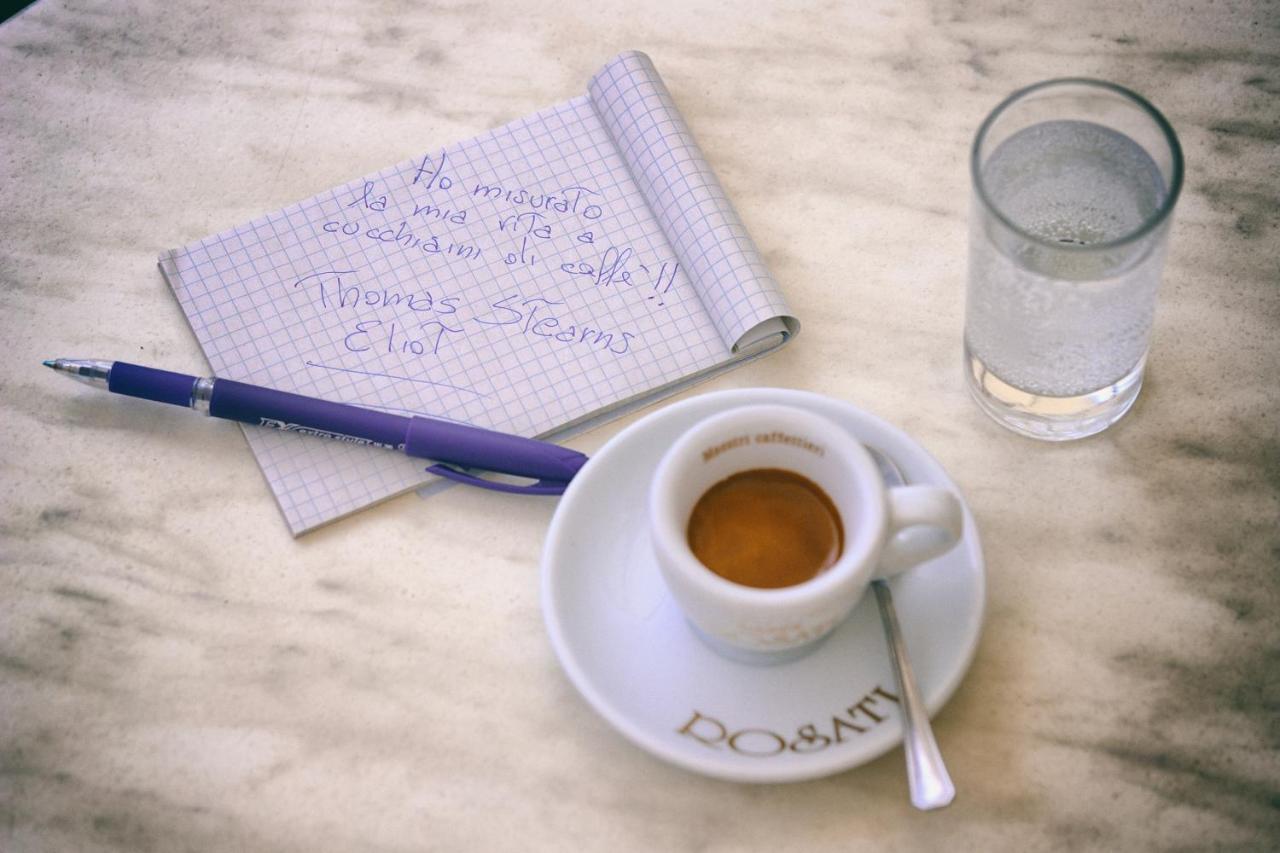 Ho misurato
la mia vita a
cucchiaini di caffè!!
Thomas Stearns
Eliot
Maestri caffettieri
ROSATI